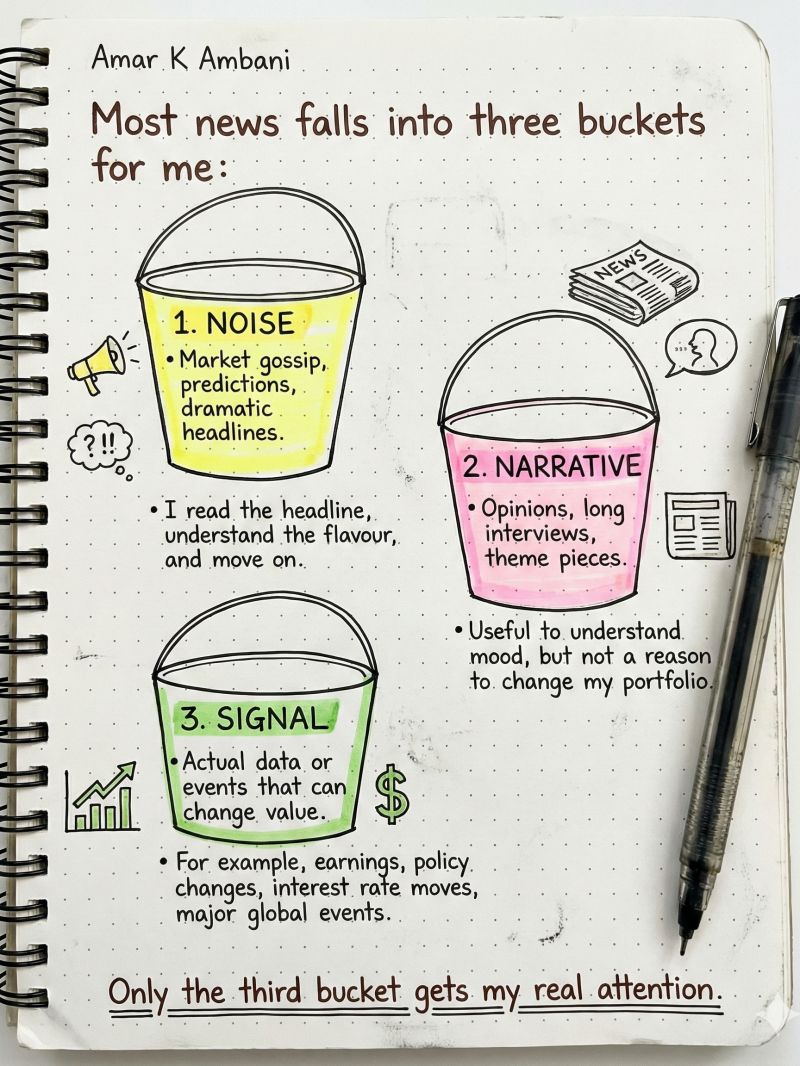 Amar K Ambani
Most news falls into three buckets
for me:
1. NOISE
• Market gossip,
predictions,
dramatic
headlines.
?!!
• I read the headline,
understand the flavour,
and move on.
NEWS
2. NARRATIVE
• Opinions, long
interviews,
theme pieces.
• Useful to understand
mood, but not a reason
to change my portfolio.
3. SIGNAL
• Actual data or
events that can
change value.
$
• For example, earnings, policy
changes, interest rate moves,
major global events.
Only the third bucket gets my real attention.